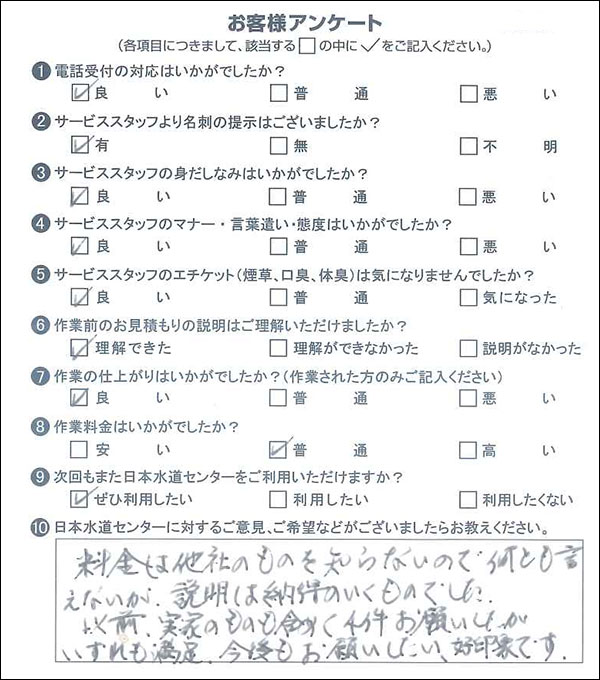 お客様アンケート
(各項目につきまして、該当する□の中に✓をご記入ください。)
❶ 電話受付の対応はいかがでしたか？
☑良い □普通 □悪い
❷ サービススタッフより名刺の提示はございましたか？
☑有 □無 □不明
❸ サービススタッフの身だしなみはいかがでしたか？
☑良い □普通 □悪い
❹ サービススタッフのマナー・言葉遣い・態度はいかがでしたか？
☑良い □普通 □悪い
❺ サービススタッフのエチケット(煙草、口臭、体臭)は気になりませんでしたか？
☑良い □普通 □気になった
❻ 作業前のお見積もりの説明はご理解いただけましたか？
☑理解できた □理解ができなかった □説明がなかった
❼ 作業の仕上がりはいかがでしたか？(作業された方のみご記入ください)
☑良い □普通 □悪い
❽ 作業料金はいかがでしたか？
□安い ☑普通 □高い
❾ 次回もまた日本水道センターをご利用いただけますか？
☑ぜひ利用したい □利用したい □利用したくない
❿ 日本水道センターに対するご意見、ご希望などがございましたらお教えください。
料金は他社のものを知らないので何とも言
えないが、説明は納得のいくものでした。
以前、実家のものも含めて4件お願いしたが
いずれも満足。今後もお願いしたい、好印象です。